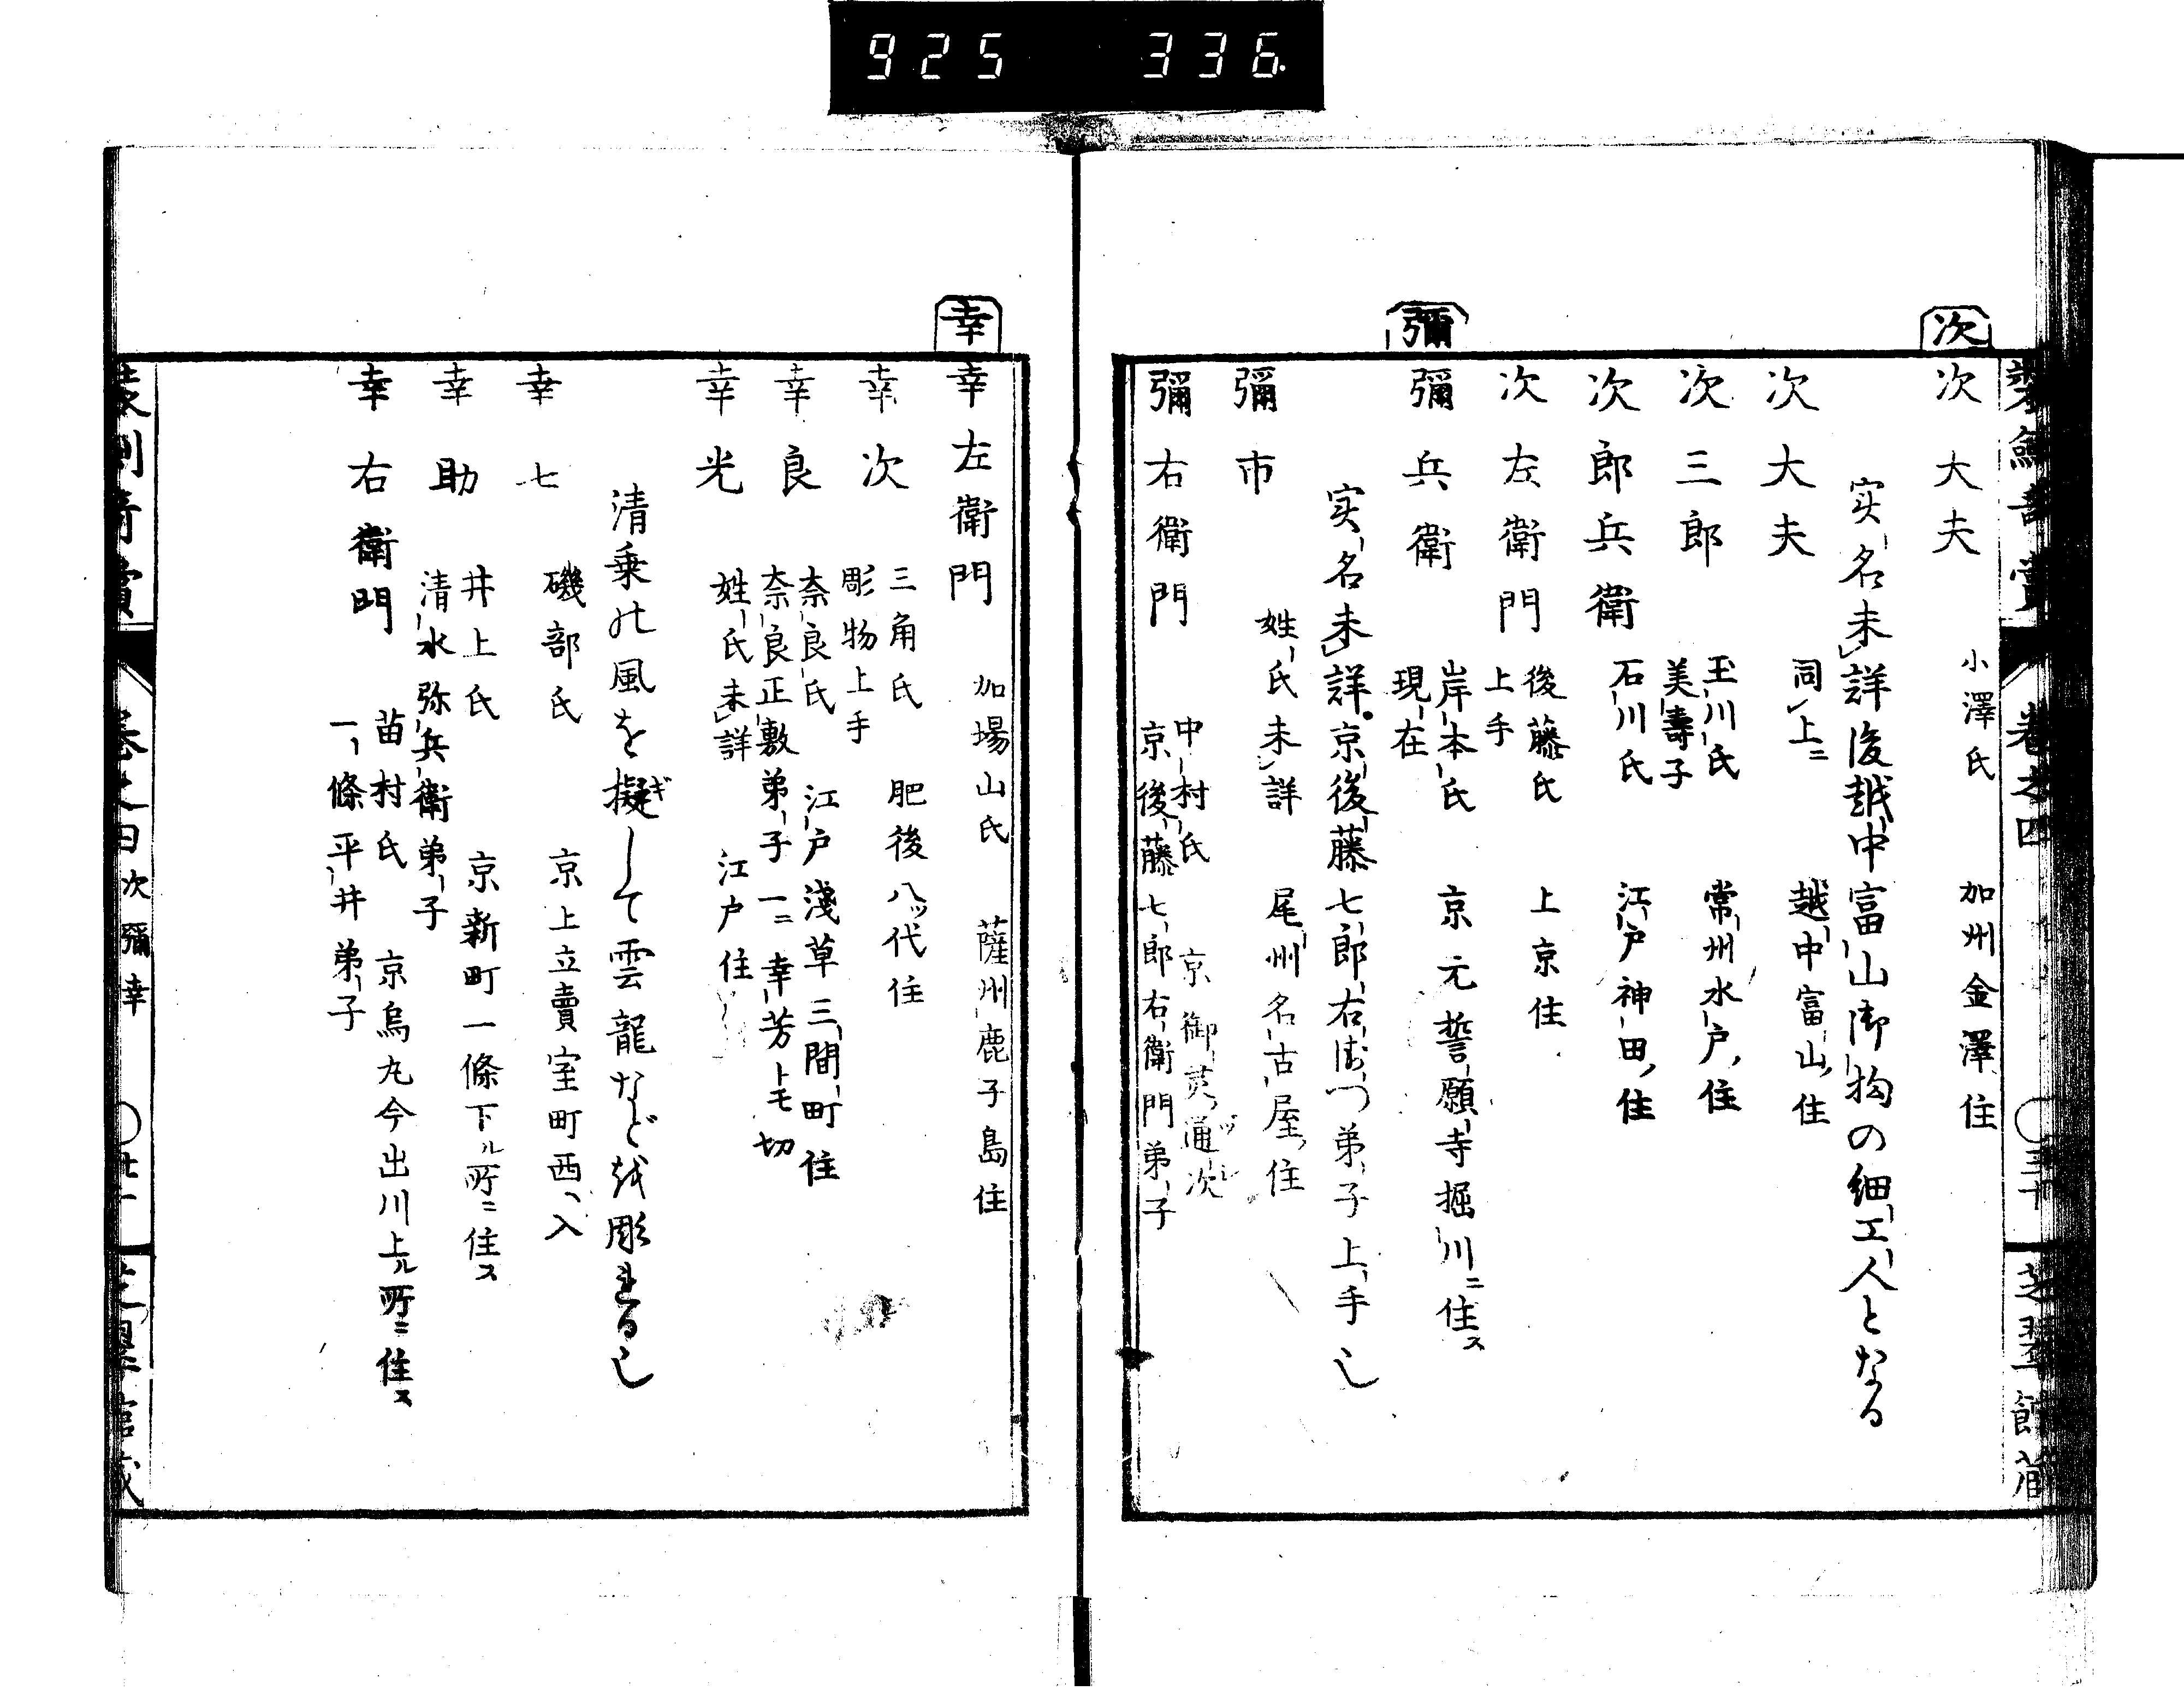 925 336
次
次大夫 小澤氏 加州金澤住
実名未詳後越中富山御抱の細工人となる
次大夫 同上ニ 越中富山住
次三郎 玉川氏 常州水戸住
美壽子
次郎兵衛 石川氏 江戸神田住
次左衛門 後藤氏 上京住
上手
彌
彌兵衛 岸本氏 京元誓願寺掘川ニ住ス
現在
実名未詳京後藤七郎右衛門弟子上手也
彌市 姓氏未詳 尾州名古屋住
彌右衛門 中村氏 京御灵通次
京後藤七郎右衛門弟子
幸
幸左衛門 加場山氏 薩州鹿子島住
幸次 三角氏 肥後八ッ代住
彫物上手
幸良 奈良氏 江戸淺草三間町住
奈良正敷弟子一ニ幸芳トモ切
幸光 姓氏未詳 江戸住
清乗の風を擬して雲龍などを彫れる也
ギ
幸七 磯部氏 京上立賣室町西入
幸助 井上氏 京新町一條下ル所ニ住ス
清水弥兵衛弟子
幸右衛門 苗村氏 京烏丸今出川上ル所ニ住ス
一條平井弟子
次彌幸